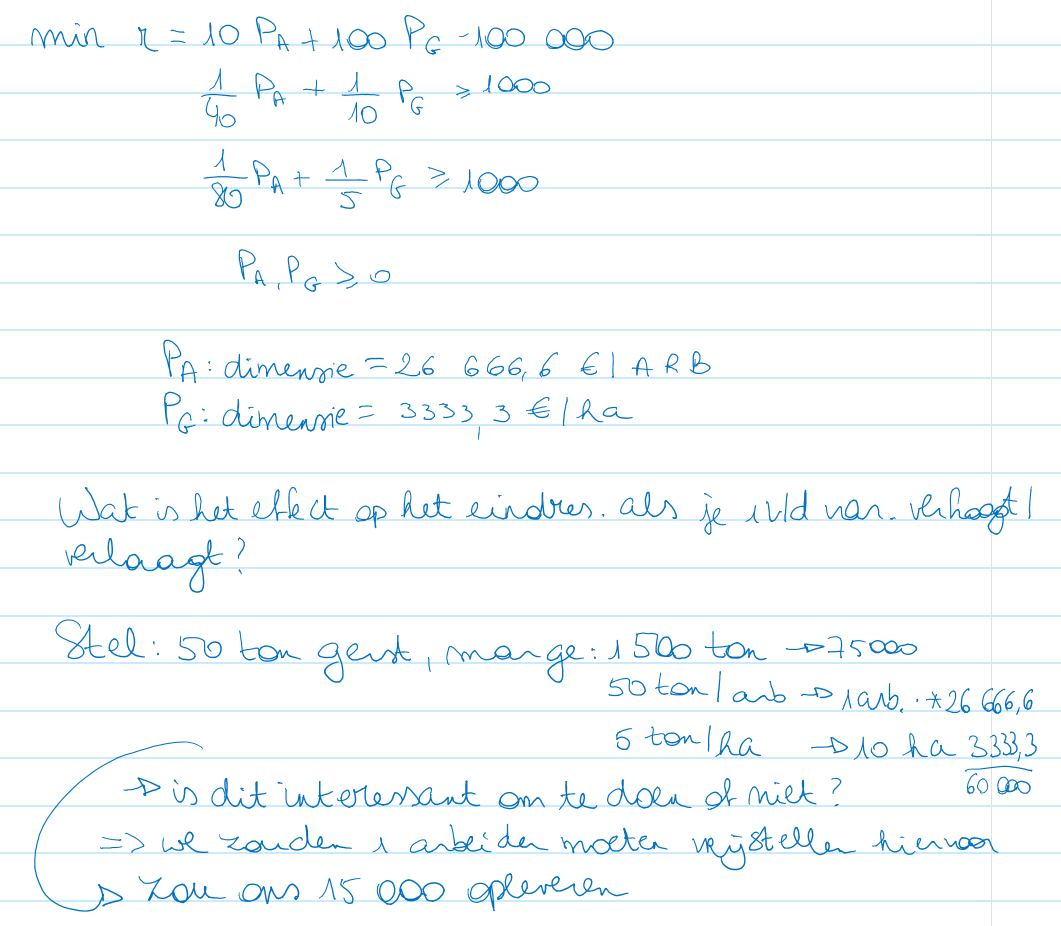 min r = 10 P_A + 100 P_G - 100 000
1/40 P_A + 1/10 P_G ≥ 1000
1/80 P_A + 1/5 P_G ≥ 1000
P_A, P_G ≥ 0
P_A: dimensie = 26 666,6 €/ARB
P_G: dimensie = 3333,3 €/ha
Wat is het effect op het eindres. als je 1 v/d var. verhoogt/
verlaagt?
Stel: 50 ton gerst, marge: 1500 ton → 75000
50 ton/arb → 1 arb. * 26 666,6
5 ton/ha → 10 ha 3333,3
60 000
→ is dit interessant om te doen of niet?
=> we zouden 1 arbeider moeten vrijstellen hiervoor
→ zou ons 15 000 opleveren